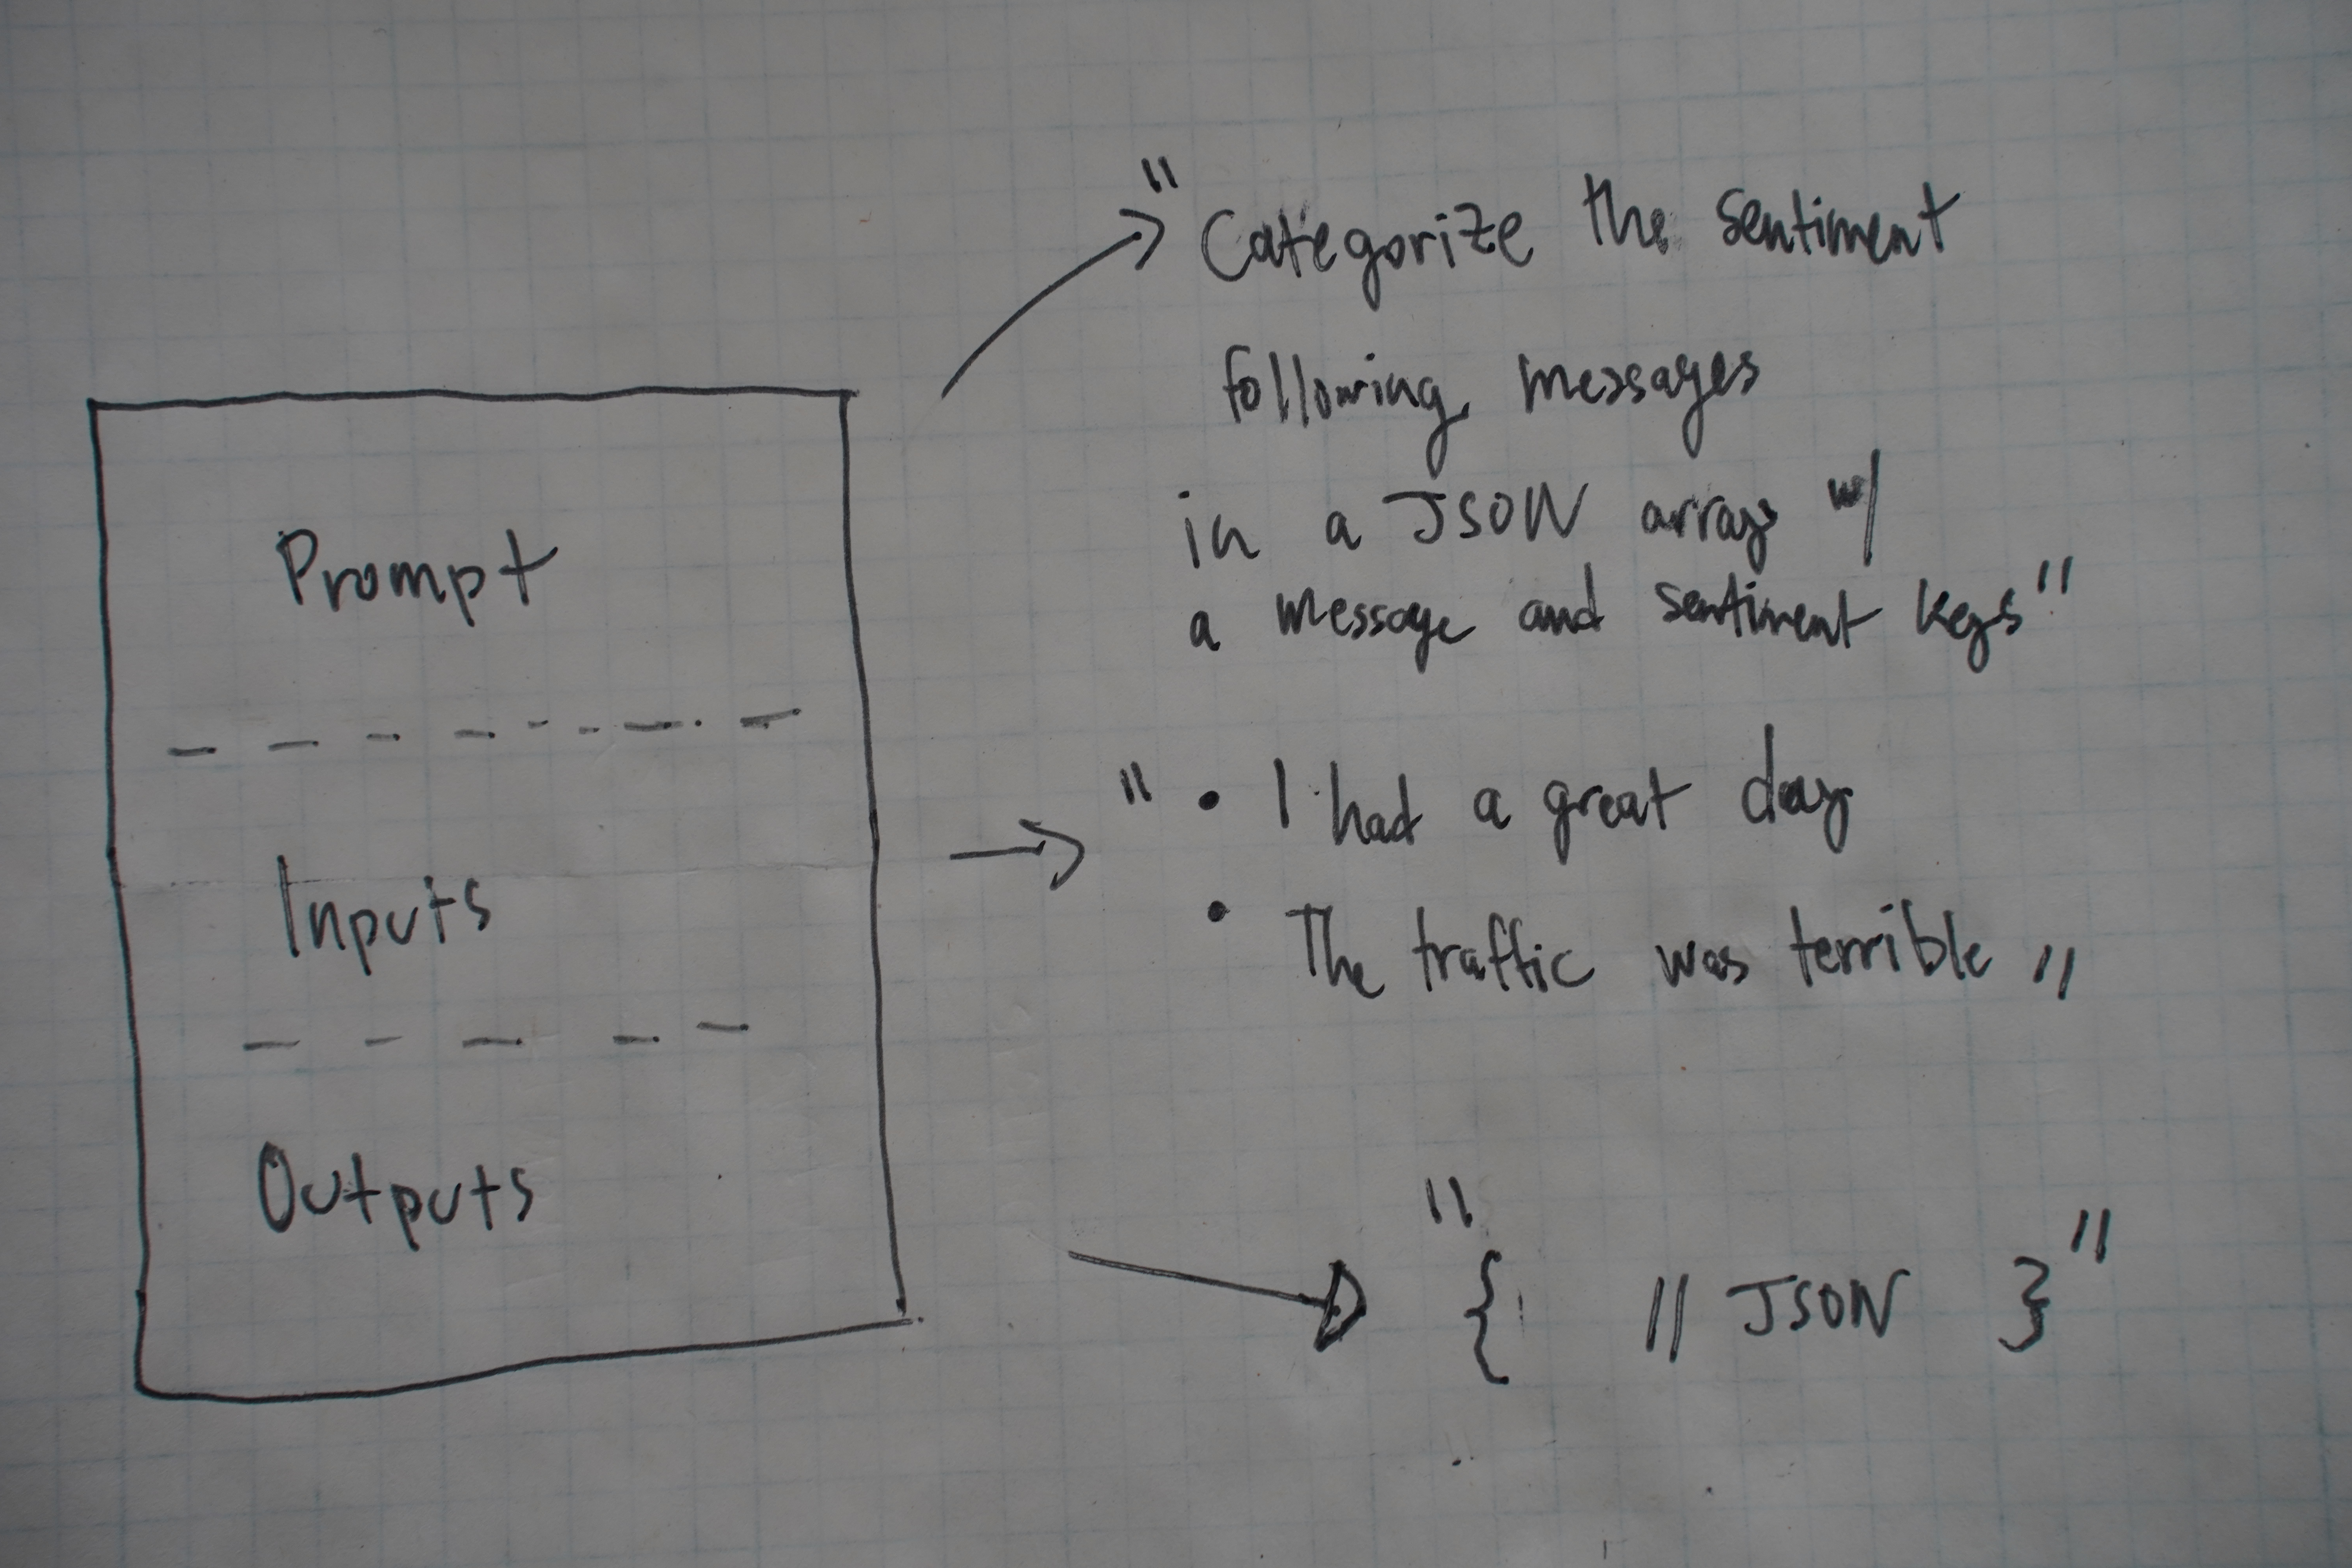 Prompt
Inputs
Outputs
"Categorize the sentiment
following messages
in a JSON array w/
a message and sentiment keys"
"• I had a great day
• The traffic was terrible"
"{ // JSON }"